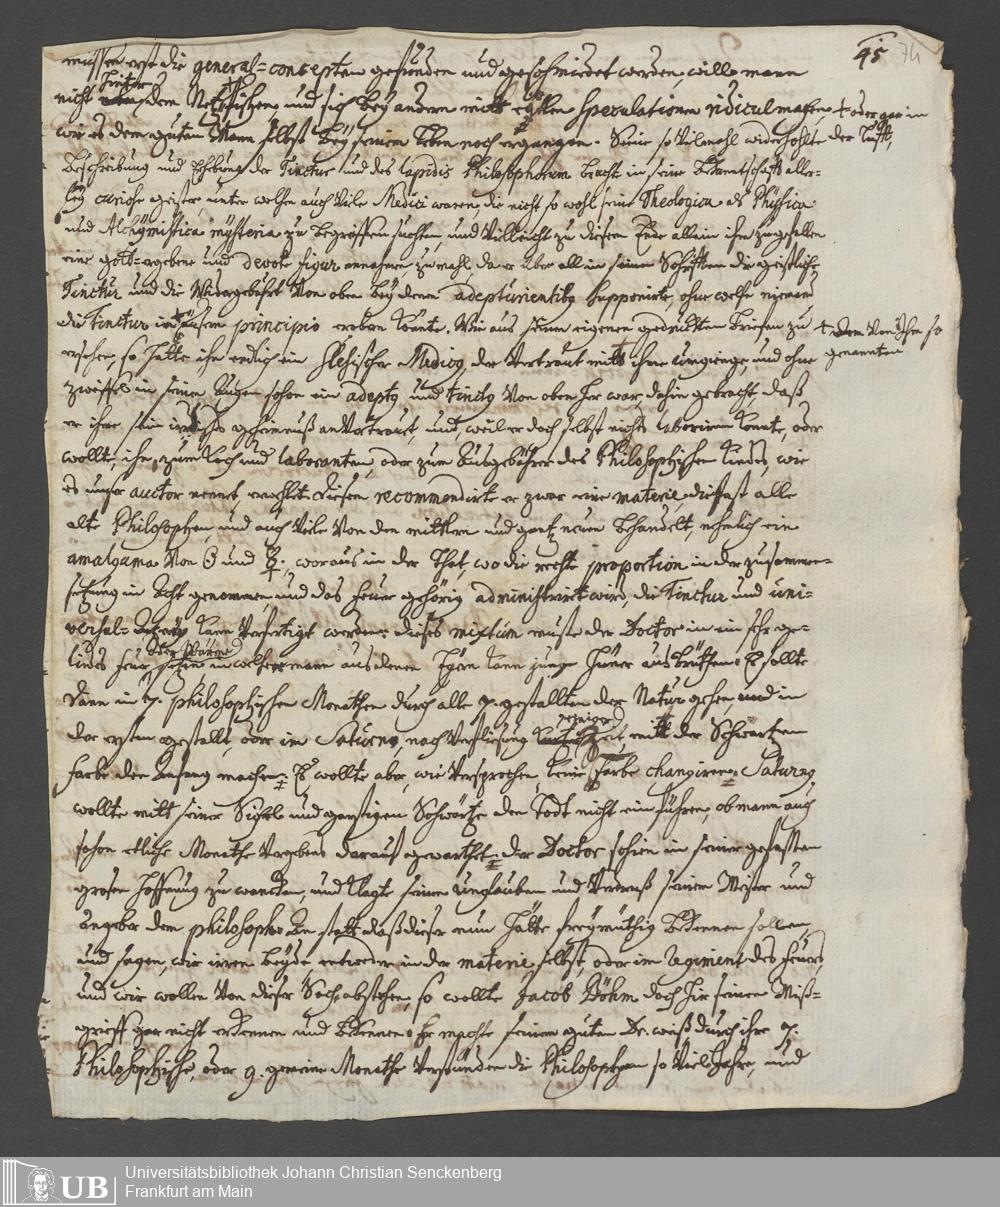 45 74
müssen erst die general-concepten gefunden und geschmiedet werden, will mann
nicht hinter dem Netz fischen und sich bey andern mitt eytlen Speculationen ridicul machen, + oder gar in
wie es dem guten Mann selbst bey seinem Leben noch ergangen. Seine so vilmahl widerhohlte der lufft,
beschreibung und Erhebung der Tinctur und des lapidis Philosophorum bracht in seine bekanntschafft aller-
ley curiose geister, unter welchen auch vile Medici waren, die nicht so wohl seine Theologica als Phisica
und Alchymistica mysteria zu begreiffen suchten, und villeicht zu diesem Ende allein ihm zu gefallen
eine gott-ergebene und devote figur annahmen zumahl, da er über all in seinen Schrifften die geistliche
Tinctur und die Widergebuhrt von oben bey denen adepturientibus supponirte, ohne welche niemand
die Tinctur in principio erben könte. Wie aus seinen eigenen gedruckten briefen zu + dem von Ihm so
ersehen, so hatte ihn endlich ein schlesischer Medicus, der vertraut mitt ihme umgienge, und ohne genannten
zweiffel in seinen Augen schon ein adeptus und tinctus von oben her war, dahin gebracht, daß
er ihme sein irrdisches geheimnuß anvertraut, und, weil er doch selbst nichts laboriren konnte, oder
wollte, ihn zum Koch und laboranten, oder zum Ausgebährer des Philosophischen Kindes, wie
es unser auctor nennt, erwehlte. Diesem recommendirte er zwar eine materie, die fast alle
alte Philosophen, und auch vile von den mittlern und gantz neuen behandelt, nehmlich ein
amalgama von ☉ und ☿, woraus in der That, wo die rechte proportion in der zusammen-
setzung in Acht genommen, und das feuer gehörig administrirt wird, die Tinctur und uni-
versal- kann verfertigt werden. dieses mixtum muste der Doctor in ein sehr ge-
lindes feur oder wärme setzen in welcher mann aus denen Eyern kann junge hüner ausbrüthen. Es sollte
dann in 7. philosophischen Monathen durch alle 7. gestallten der Natur gehen, und in
der ersten gestallt oder im Saturno, nach verfliesung einiger Zeit, mitt der Schwartzen
farbe den Anfang machen. Es wollte aber, wie versprochen, keine farbe changiren. Saturnus
wollte mitt seiner Sichel und garstigen Schwärtze den Todt nicht einführen, ob mann auch
schon etliche Monathe vergebens darauf gewarthet. der Doctor schien in seiner gefassten
grosen hoffnung zu wancken, und klagte seinen unglauben und Verdruß seinem Meister und
angeber dem philosopho. An statt daß dieser nun hätte freymüthig bekennen sollen,
und sagen, wir irren beyde entweder in der materie selbst, oder im Regiment des feuers,
und wir wollen von dieser Sach abstehen, so wollte Jacob Böhm doch hir seinen Miß-
grieff gar nicht erkennen und bekennen. Er machte seinem guten Dr. weiß durch ihre 7.
Philosophische, oder 9. gemeine Monathe verstünden die Philosophen so viel Jahre, und
Universitätsbibliothek Johann Christian Senckenberg
Frankfurt am Main
UB